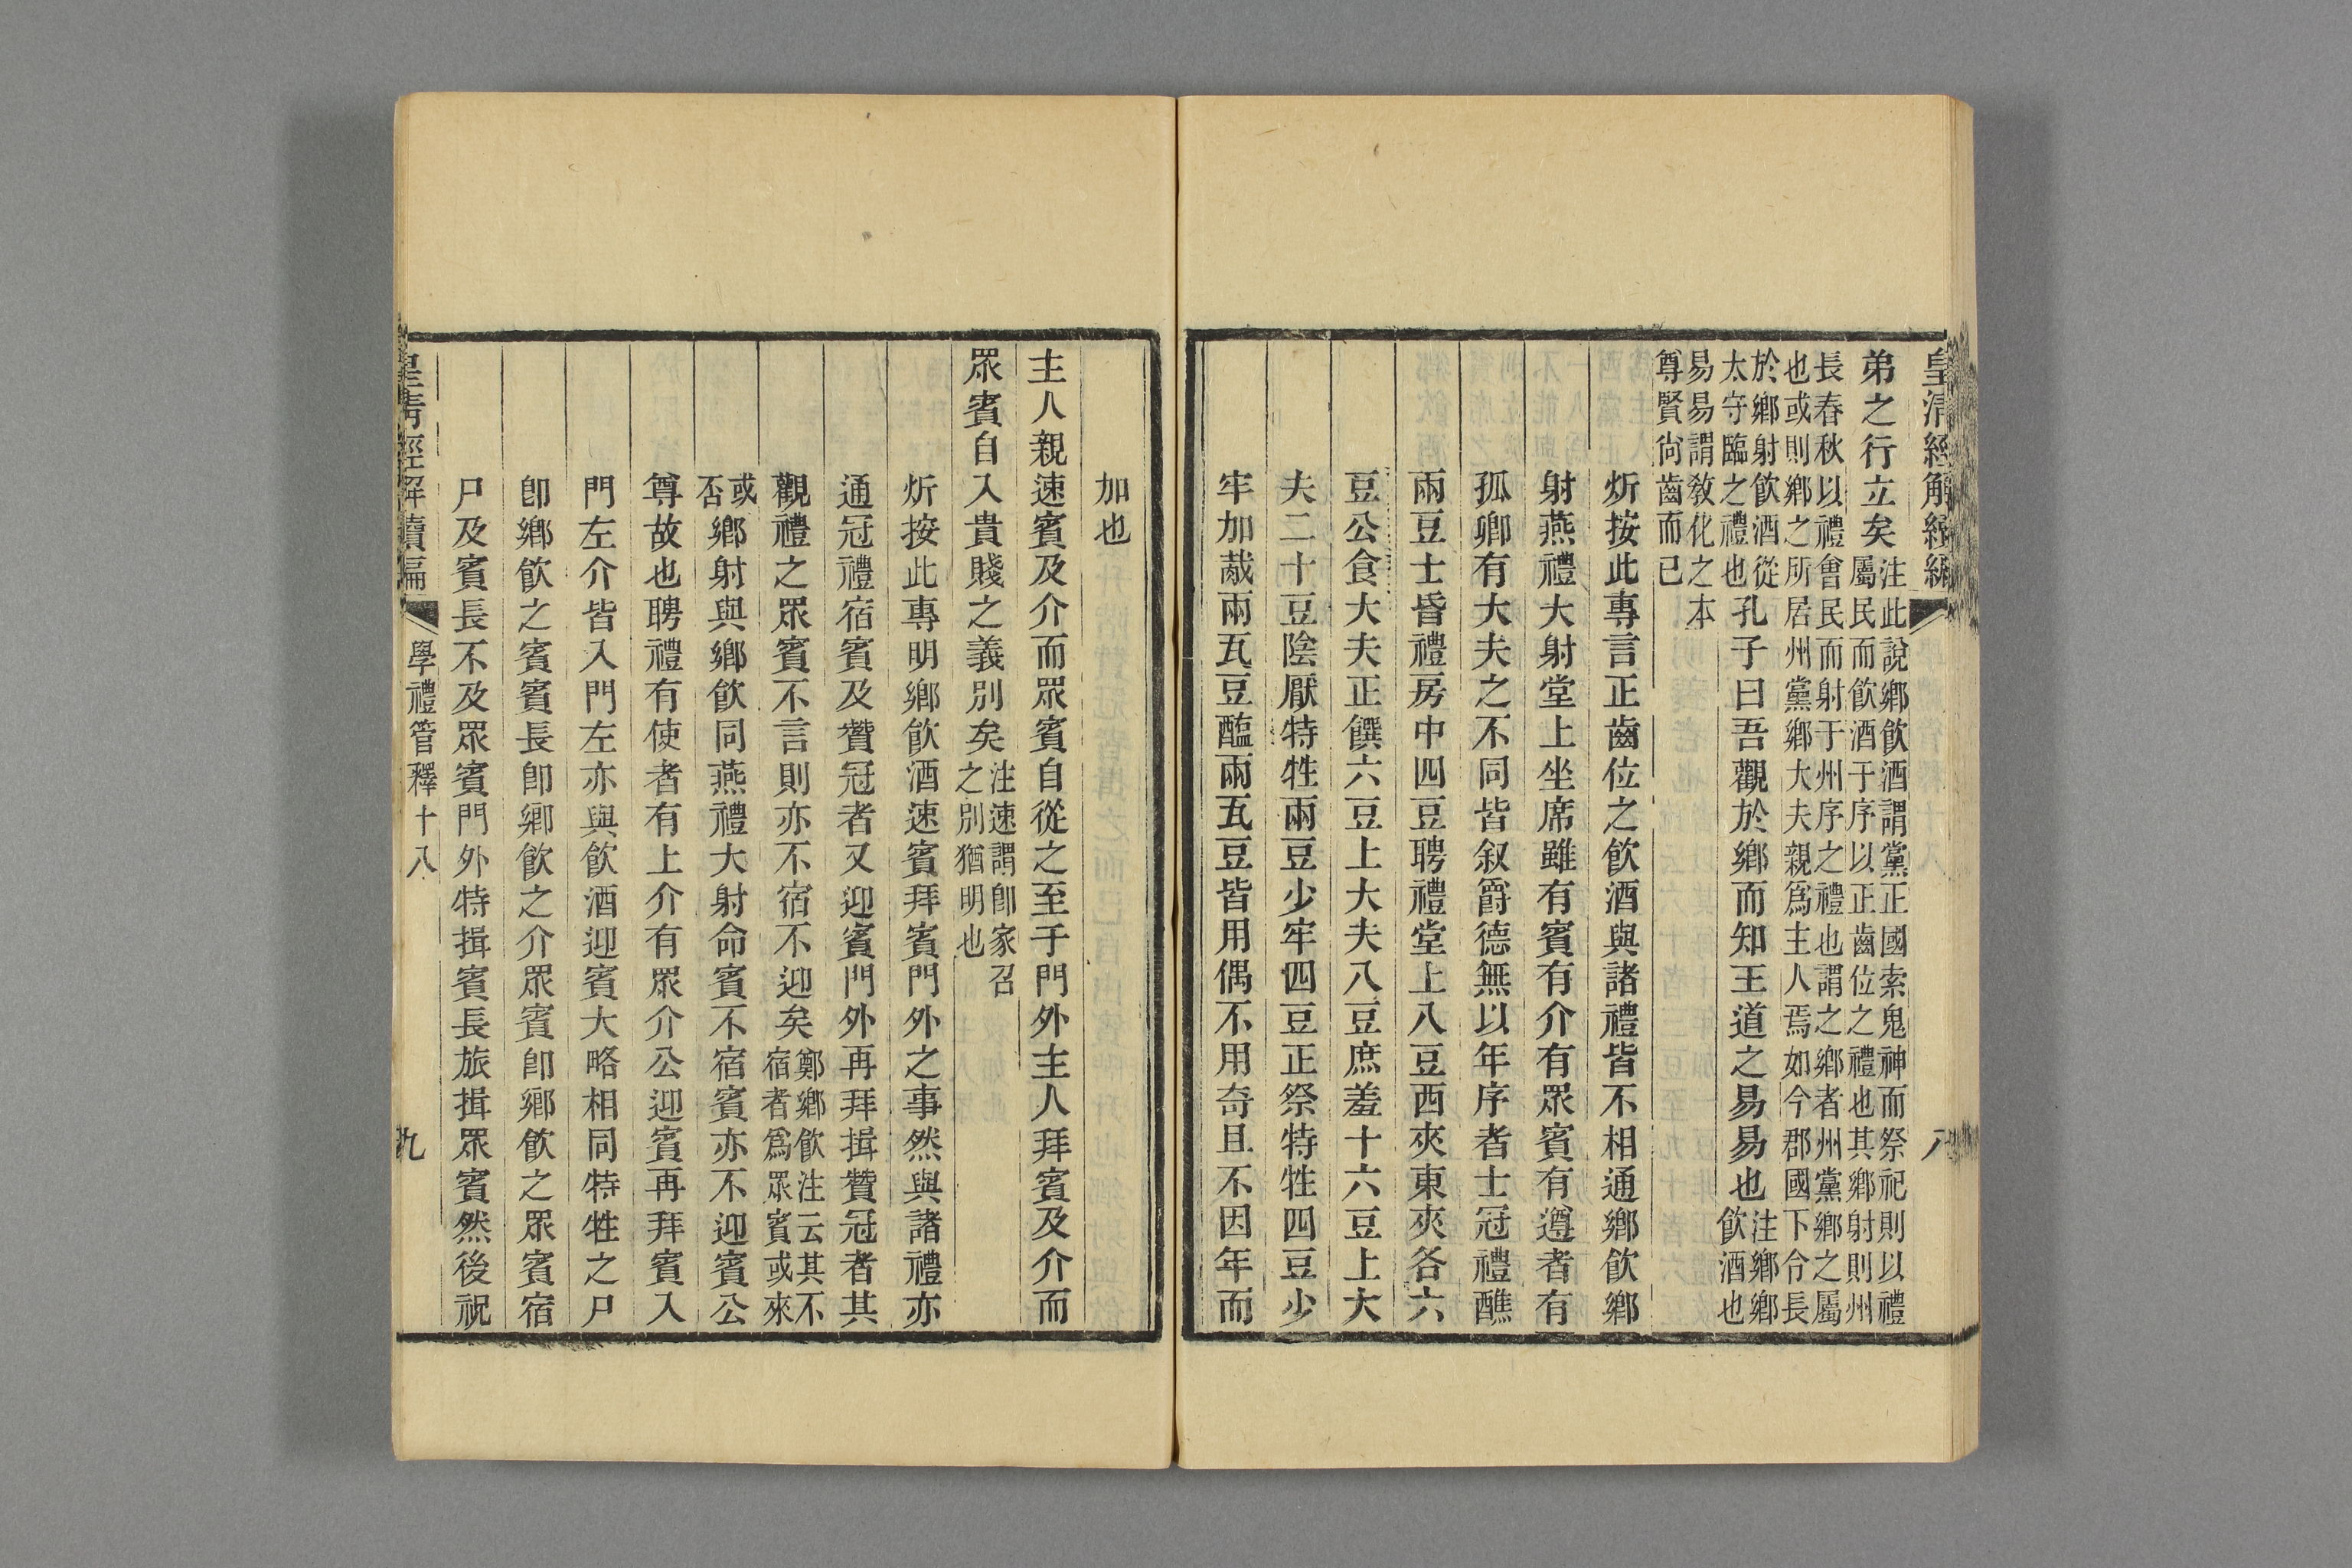 皇清經解續編
八
弟之行立矣注此說鄉飲酒謂黨正國索鬼神而祭祀則以禮屬民而飲酒于序以正齒位之禮也其鄉射則州
長春秋以禮會民而射于州序之禮也謂之鄉者州黨鄉之屬也或則鄉之所居州黨鄉大夫親爲主人焉如今郡國下令長
於鄉射飲酒從太守臨之禮也孔子曰吾觀於鄉而知王道之易易也注鄉鄉飲酒也
易易謂敎化之本尊賢尙齒而已
炘按此專言正齒位之飲酒與諸禮皆不相通鄉飲鄉
射燕禮大射堂上坐席雖有賓有介有眾賓有遵者有
孤卿有大夫之不同皆叙爵德無以年序者士冠禮醮
兩豆士昏禮房中四豆聘禮堂上八豆西夾東夾各六
豆公食大夫正饌六豆上大夫八豆庶羞十六豆上大
夫二十豆陰厭特牲兩豆少牢四豆正祭特牲四豆少
牢加胾兩瓦豆醢兩瓦豆皆用偶不用奇且不因年而
加也
主人親速賓及介而眾賓自從之至于門外主人拜賓及介而
眾賓自入貴賤之義別矣注速謂卽家召之別猶明也
炘按此專明鄉飲酒速賓拜賓門外之事然與諸禮亦
通冠禮宿賓及贊冠者又迎賓門外再拜揖贊冠者其
觀禮之眾賓不言則亦不宿不迎矣鄭鄉飲注云其不宿者爲眾賓或來
或否鄉射與鄉飲同燕禮大射命賓不宿賓亦不迎賓公
尊故也聘禮有使者有上介有眾介公迎賓再拜賓入
門左介皆入門左亦與飲酒迎賓大略相同特牲之尸
卽鄉飲之賓賓長卽鄉飲之介眾賓卽鄉飲之眾賓宿
尸及賓長不及眾賓門外特揖賓長旅揖眾賓然後祝
皇清經解續編
學禮管釋十八
九